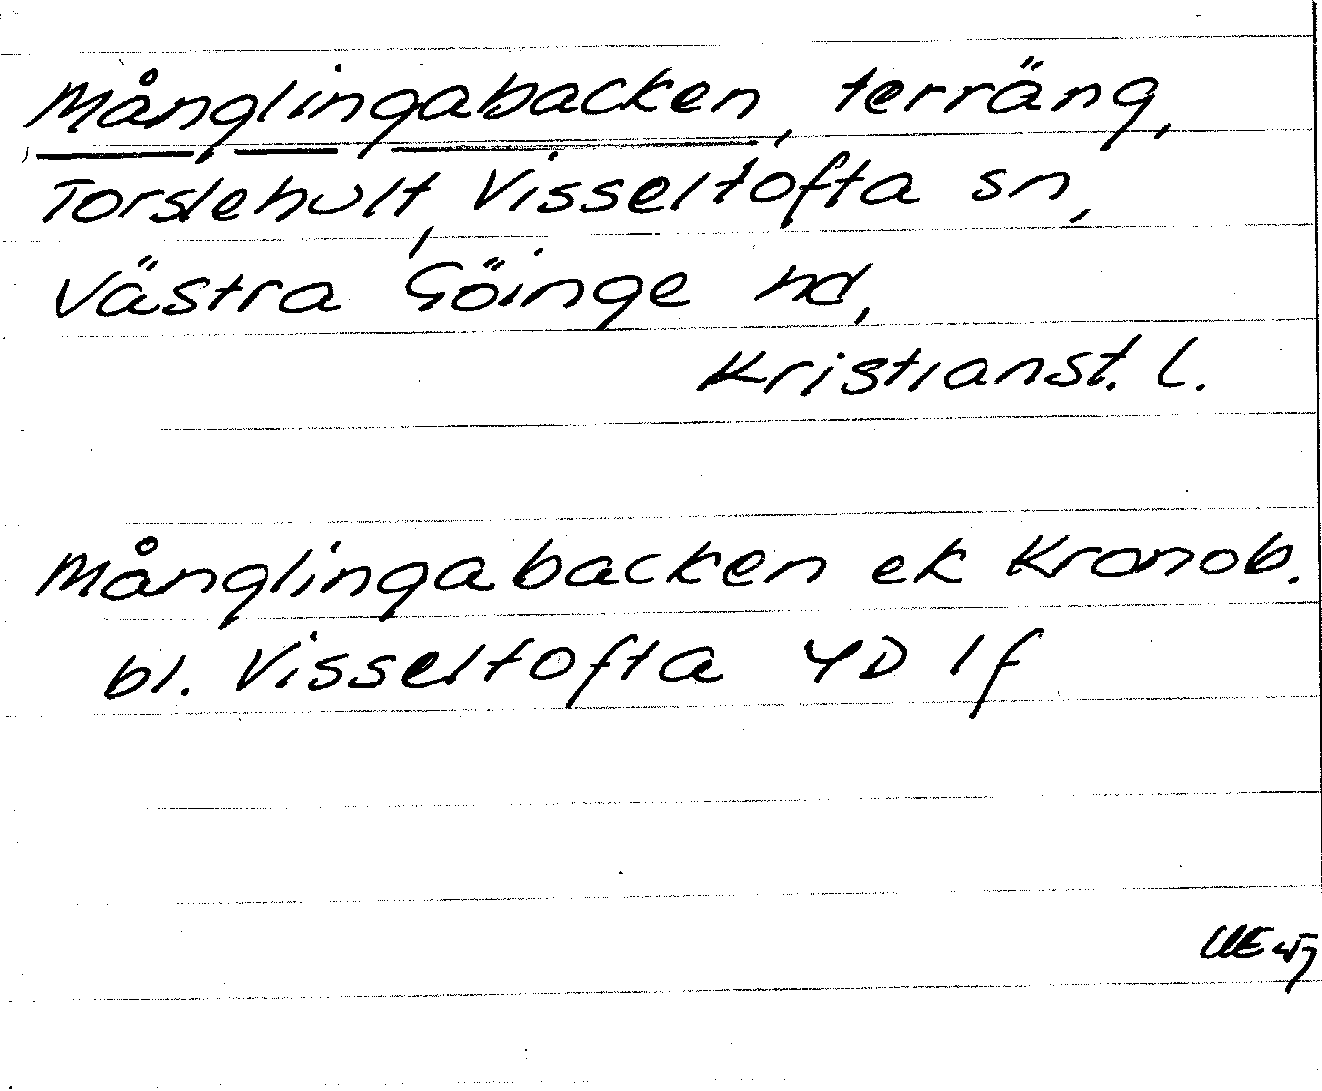 Månglingabacken, terräng,
Torslehult, Visseltofta sn,
Västra Göinge hd,
Kristianst. l.
Månglingabacken ek Kronob.
bl. Visseltofta 4D 1f